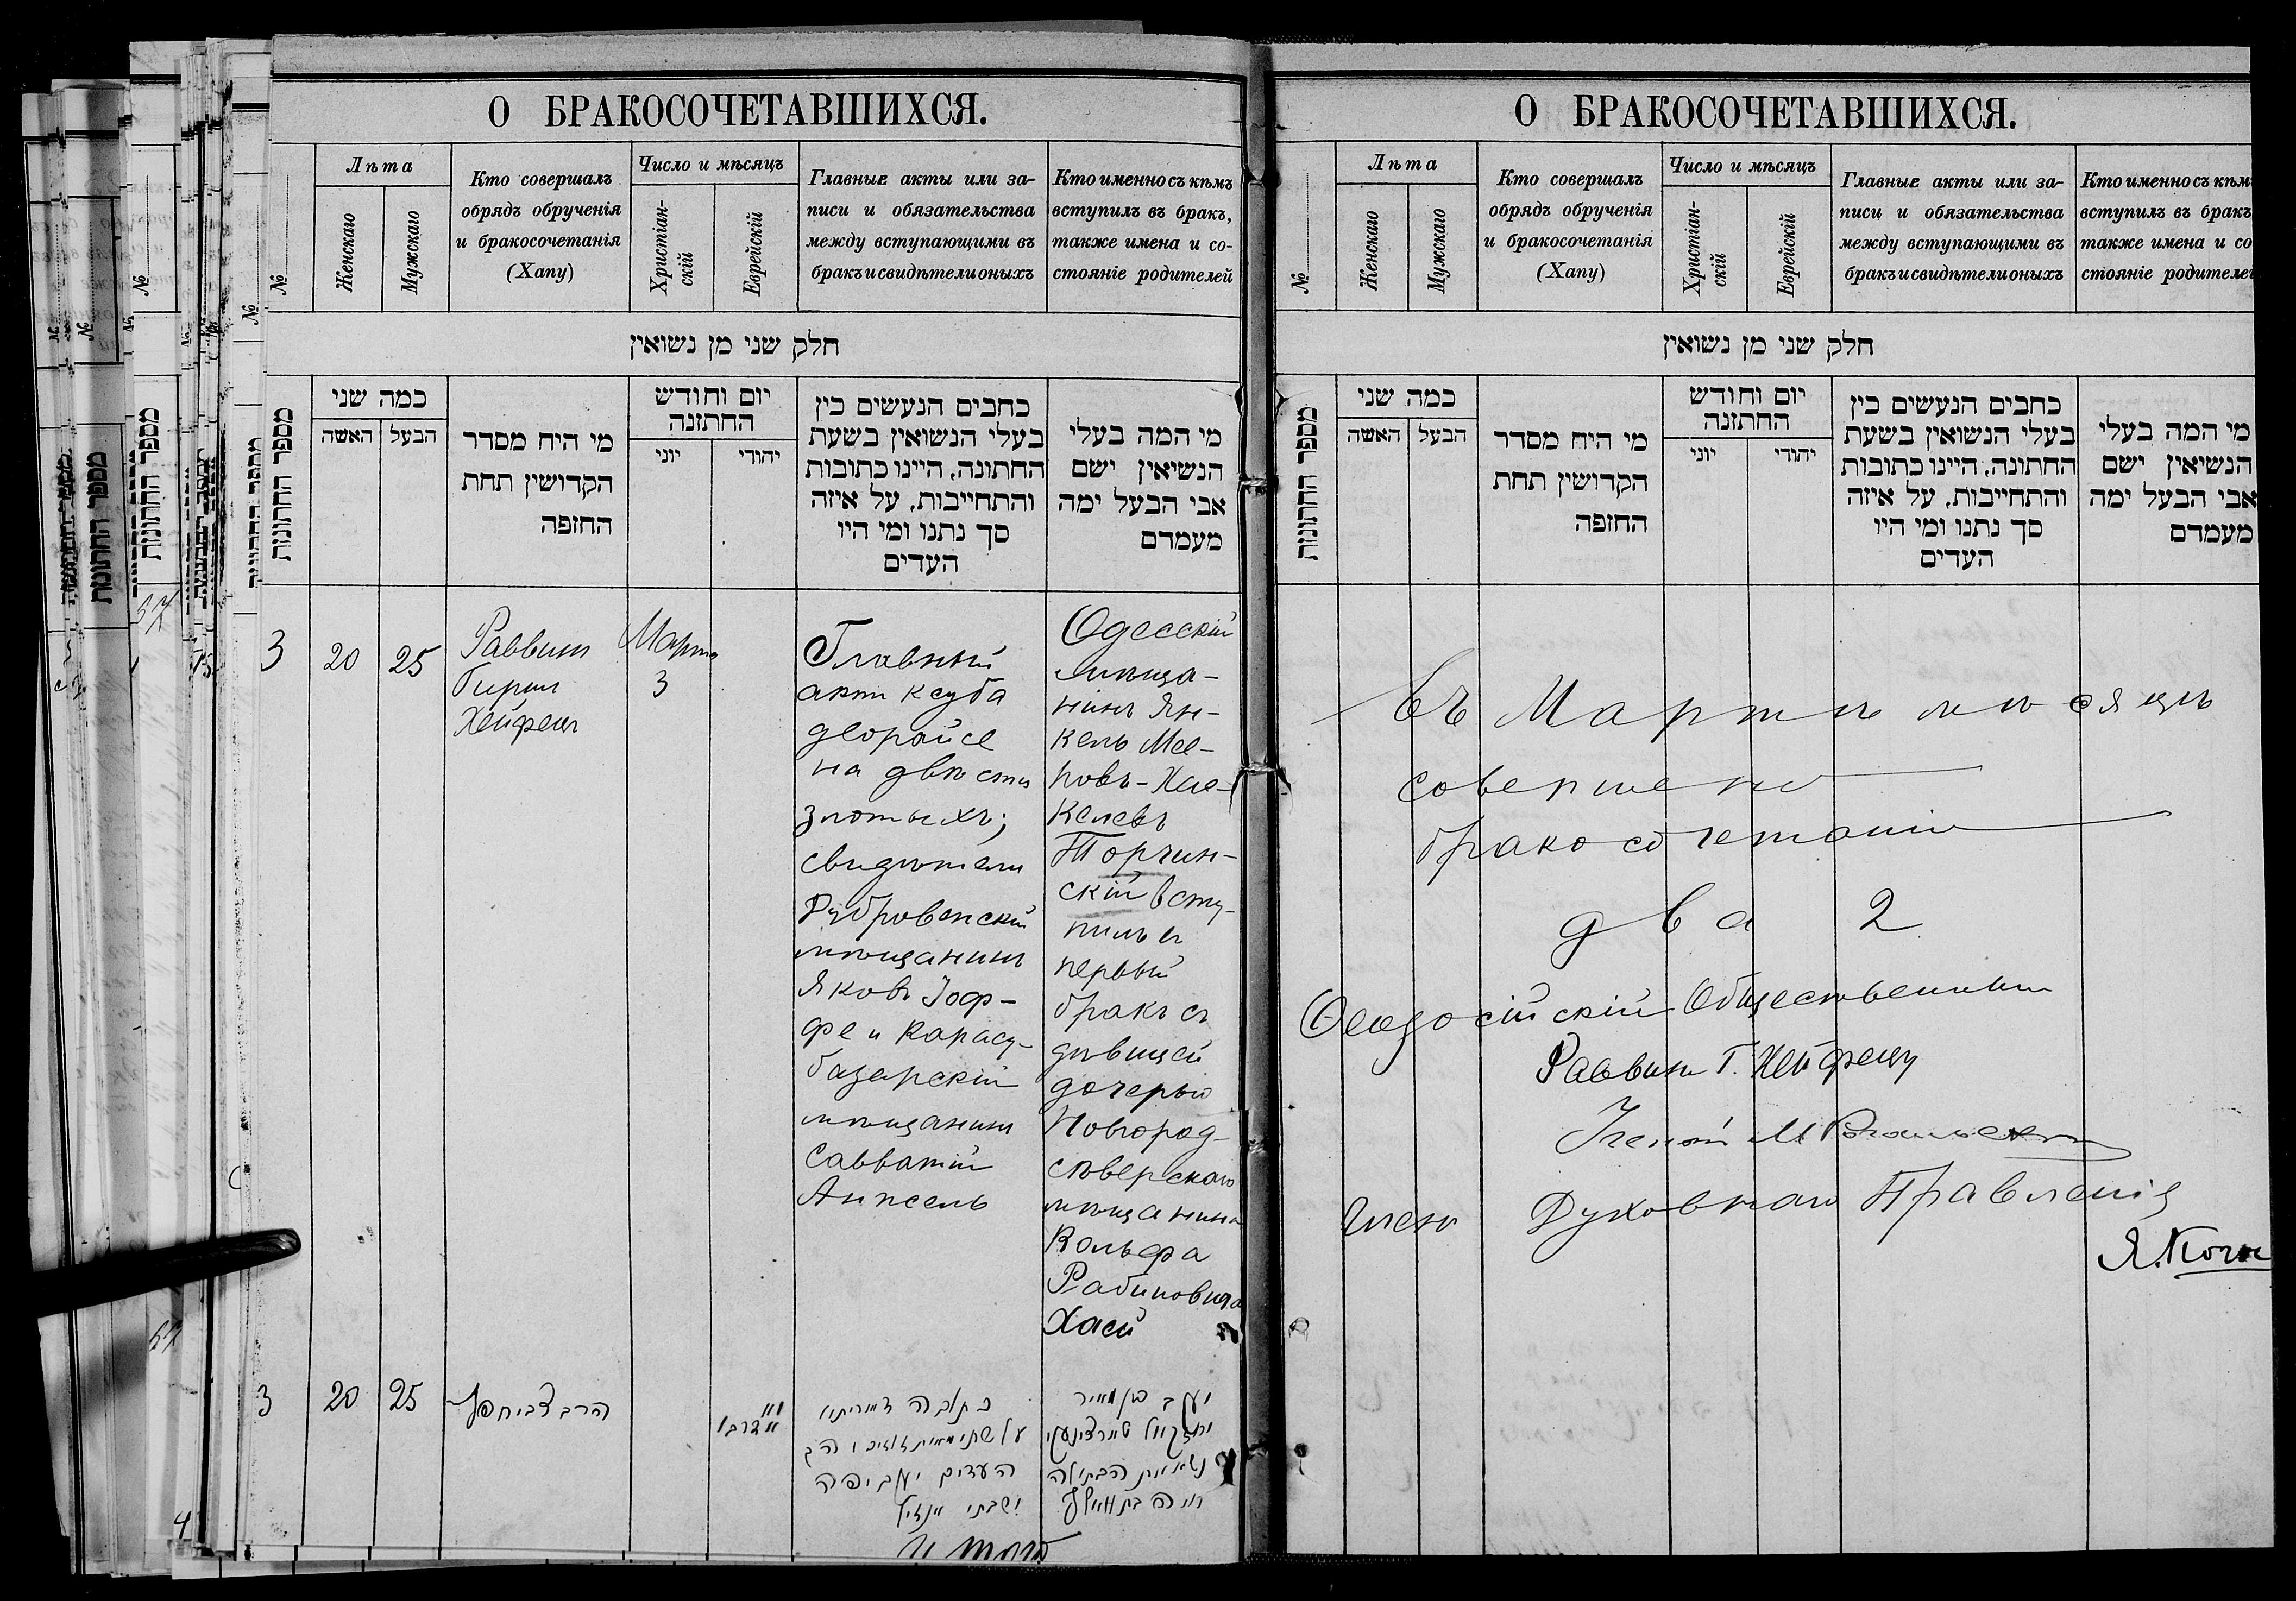 О БРАКОСОЧЕТАВШИХСЯ.
№
Лѣта
Женскаго
Мужскаго
Кто совершалъ
обрядъ обрученія
и бракосочетанія
(Хапу)
Число и мѣсяцъ
Христіан-
скій
Еврейскій
Главные акты или за-
писи и обязательства
между вступающими въ
бракъ и свидѣтели оныхъ
Кто именно съ кѣмъ
вступилъ въ бракъ,
также имена и со-
стояніе родителей
חלק שני מן נשואין
מספר החתונות
כמה שני
האשה
הבעל
מי היח מסדר
הקדושין תחת
החופה
יום וחודש
החתונה
יוני
יהודי
כחבים הנעשים כין
בעלי הנשואין בשעת
החתונה, היינו כתובות
והתחייבות, על איזה
סך נתנו ומי היו
העדים
מי המה בעלי
הנשיאין ישם
אבי הבעל ימה
מעמדם
3
20
25
Раввинъ
Гирш
Хейфецъ
Марта
3
Главный
актъ ксуба
деорайсе
на двѣсти
злотыхъ;
свидѣтели
Дубровенскій
мѣщанинъ
Яковъ Іоф-
фе и Карасу-
базарскій
мѣщанинъ
Савватій
Анжель
Одесскій
мѣща-
нинъ Ян-
кель Мее-
ровъ-Хас-
келевъ
Торчин-
скій всту-
пилъ въ
первый
бракъ съ
дѣвицей
дочерью
Новгород-
сѣверскаго
мѣщанина
Вольфа
Рабиновича
Хасей
3
20
25
הרב צבי חפץ
אדר
כתובה דאוריתא
על שתי מאות זוזים
העדים יעקב יפה
שבתי אנזיל
יעקב בן מאיר
יחזקאל טארצינסקי
נשא את הבתולה
חיה בת וואלף
Итого
О БРАКОСОЧЕТАВШИХСЯ.
№
Лѣта
Женскаго
Мужскаго
Кто совершалъ
обрядъ обрученія
и бракосочетанія
(Хапу)
Число и мѣсяцъ
Христіан-
скій
Еврейскій
Главные акты или за-
писи и обязательства
между вступающими въ
бракъ и свидѣтели оныхъ
Кто именно съ кѣмъ
вступилъ въ бракъ
также имена и со
стояніе родителей
חלק שני מן נשואין
מספר החתונות
כמה שני
האשה
הבעל
מי היח מסדר
הקדושין תחת
החופה
יום וחודש
החתונה
יוני
יהודי
כחבים הנעשים כין
בעלי הנשואין בשעת
החתונה, היינו כתובות
והתחייבות, על איזה
סך נתנו ומי היו
העדים
מי המה בעלי
הנשיאין ישם
אבי הבעל ימה
מעמדם
Въ Мартѣ мѣсяцѣ
совершено
бракосочетанія
два 2
Ѳеодосійскій Общественный
Раввинъ Г. Хейфецъ
Ученый М
Членъ Духовнаго Правленія
Я. Коганъ